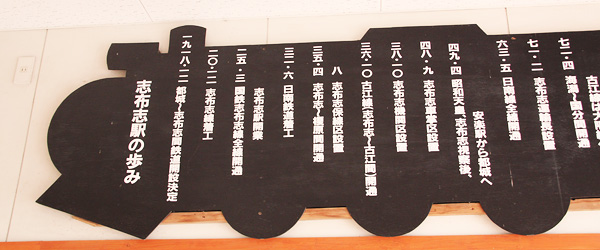 志布志駅の歩み
一九一八・二 都城〜志布志間鉄道開設決定
二〇・二 志布志線着工
二五・三 国鉄志布志線全線開通
志布志駅開業
三二・六 日南鉄道着工
三五・四 志布志〜榎原間開通
八 志布志保線区設置
三六・一〇 古江線(志布志〜古江間)開通
三八・一〇 志布志機関区設置
四八・九 志布志車掌区設置
四九・四 昭和天皇 志布志視察後、
安楽駅から都城へ
六三・五 日南線全線開通
七一・二 志布志運輸長設置
七二・四 海潟〜国分間開通
古江線